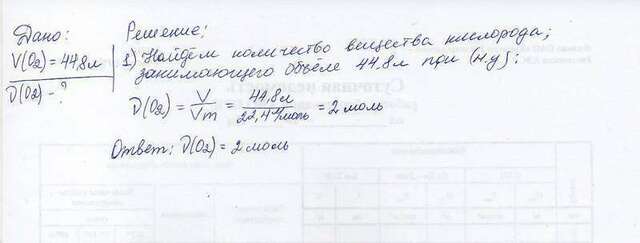 Дано:
V(O₂) = 44,8 л
D(O₂) - ?
Решение:
1) Найдём количество вещества кислорода;
занимающего объём 44,8 л при (н.у):
D(O₂) = V/Vm = 44,8 л/22,4 л/моль = 2 моль
Ответ: D(O₂) = 2 моль